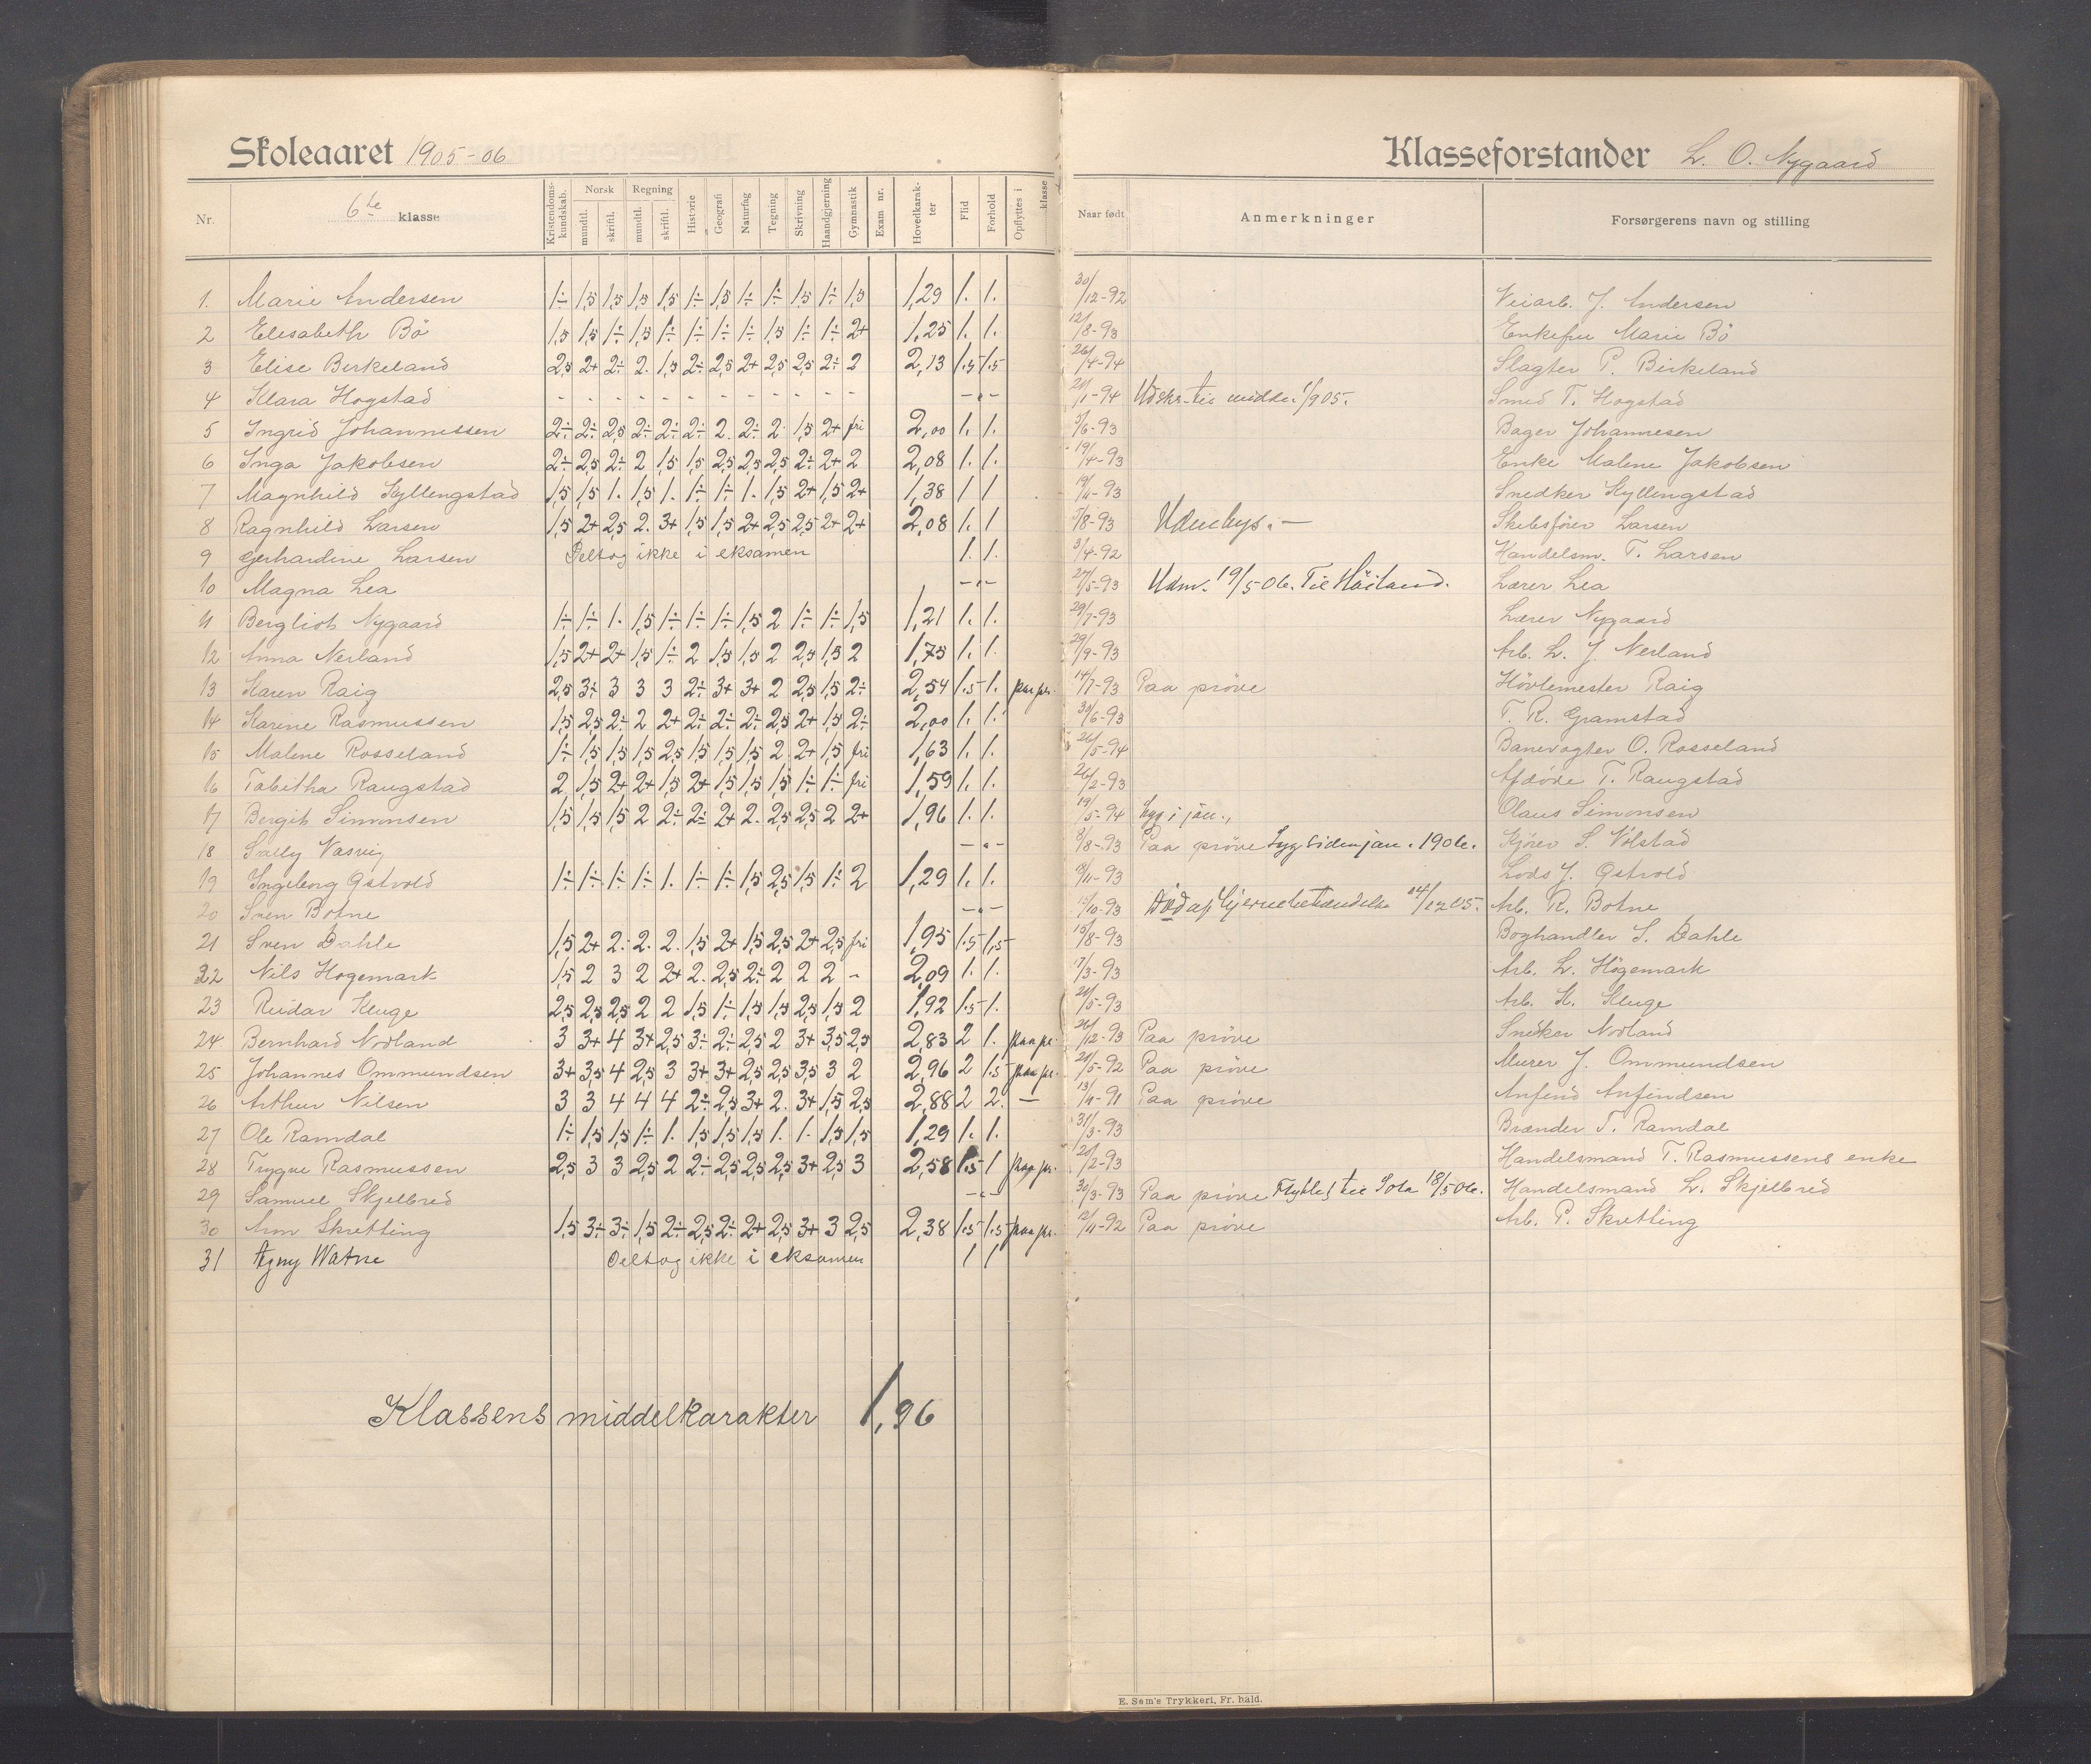 Skoleaaret 1905-06
Klasseforstander L. O. Nygaard
Nr. 6te klasse Kristendomskundskab. Norsk mundtl. skriftl. Regning mundtl. skriftl. Historie Geografi Naturfag Tegning Skrivning Haandgjerning Gymnastik Exam. nr. Hovedkarakter Flid Forhold Opflyttes i klasse Naar født Anmerkninger Forsørgerens navn og stilling
1. Marie Andersen 1÷ 1,5 1,5 1,5 1,5 1÷ 1,5 1÷ 1÷ 1,5 1÷ 1,5 1,29 1. 1. 30/12-92 Veiarb. J. Andersen
2 Elisabeth Bö 1,5 1,5 1÷ 1,5 1÷ 1÷ 1÷ 1÷ 1,5 1÷ 1÷ 2+ 1,25 1. 1. 12/8-93 Enkefru Marie Bö
3 Elise Birkeland 2,5 2+ 2÷ 2. 1,5 2÷ 2,5 2+ 2,5 2,5 2÷ 2 2,13 1.5 1.5 26/4-94 Slagter P. Birkeland
4 Klara Hogstad - - - - - - - - - - - - -„- 20/1-94 Udskr. til middel. 1/9 05. Smed T. Hogstad
5 Ingrid Johannessen 2÷ 2÷ 2,5 2÷ 2÷ 2÷ 2. 2÷ 2. 1,5 2+ fri 2,00 1. 1. 5/6-93 Bager Johannesen
6 Inga Jakobsen 2÷ 2,5 2÷ 2 1,5 1,5 2,5 2,5 2,5 2÷ 2+ 2 2,08 1. 1. 19/4-93 Enke Malene Jakobsen
7 Magnhild Kyllengstad 1,5 1,5 1. 1,5 1. 1÷ 1÷ 1. 1,5 2+ 1,5 2+ 1,38 1 1 19/11-93 Snedker Kyllingstad
8 Ragnhild Larsen 1,5 2+ 2,5 2. 3+ 1,5 1,5 2+ 2,5 2,5 2+ 2+ 2,08 1. 1 7/8-93 Skibsfører Larsen
9 Gerhardine Larsen Deltog ikke i eksamen 1. 1. 3/4-92 Handelsm. T. Larsen
10 Magna Lea -„- 27/5-93 Udm. 19/5-06. Til Höiland. Lærer Lea
11 Bergliot Nygaard 1÷ 1÷ 1. 1,5 1÷ 1÷ 1÷ 1,5 2 1÷ 1÷ 1,5 1,21 1. 1. 29/7-93 Lærer Nygaard
12 Anna Nerland 1,5 2+ 2+ 1,5 1÷ 2 1,5 1,5 2 2,5 1,5 2 1,75 1. 1. 29/9-93 Arb. L. J. Nerland
13 Karen Raig 2,5 3÷ 3 3 3 2÷ 3+ 3+ 2 2,5 1,5 2÷ 2,54 1.5 1. paa pr. 14/7-93 Paa pröve Hövlemester Raig
14 Karine Rasmussen 1,5 2,5 2÷ 2 2+ 2÷ 2÷ 2÷ 2,5 2+ 1,5 2÷ 2,00 1. 1. 30/6-93 T. R. Gramstad
15 Malene Rosseland 1÷ 1,5 1,5 1,5 2,5 1,5 1,5 1,5 2 2+ 1,5 fri 1,63 1. 1. 21/5-94 Banevogter O. Rosseland
16 Tabitha Raugstad 2 1,5 2+ 2+ 1,5 2+ 1,5 1,5 1,5 1÷ 1÷ fri 1,59 1. 1. 26/2-93 Afdöde T. Raugstad
17 Bergit Simonsen 1,5 1,5 1,5 2 2÷ 2÷ 2+ 2. 2,5 2,5 2 2+ 1,96 1. 1. 19/5-94 Syg i jan., Olaus Simonsen
18 Sally Vasvig -„- 8/8-93 Paa pröve Syg siden jan. 1906. Kjörer S. Völstad
19 Ingeborg Østvold 1÷ 1÷ 1÷ 1÷ 1. 1÷ 1÷ 1,5 2,5 1,5 1÷ 2 1,29 1. 1. 18/11-93 Lods J. Østvold
20 Sven Botne -„- 15/10-93 Död af Hjernebetændelse 24/12 05. Arb. R. Botne
21 Sven Dahle 1,5 2+ 2. 2. 2. 1,5 2+ 1,5 2,5 2+ 2,5 fri 1,95 1.5 1,5 15/8-93 Boghandler S. Dahle
22 Nils Hogemark 1,5 2 3 2 2+ 2. 2,5 2÷ 2 2 2 - 2,09 1. 1. 7/3-93 Arb. L. Högemark
23 Reidar Kluge 2,5 2,5 2,5 2 2 1,5 1÷ 1,5 1,5 2,5 1,5 2 1,92 1.5 1. 21/5-93 Arb. K. Kluge
24 Bernhard Nodland 3 3+ 4 3+ 2,5 3÷ 2÷ 2,5 2 3+ 3,5 2,5 2,83 2 1. paa pr. 26/12-93 Paa pröve Snekker Nodland
25 Johannes Ommundsen 3+ 3,5 4 2,5 3 3+ 3+ 2,5 2,5 3,5 3 2 2,96 2 1.5 paa pr. 21/5-92 Paa pröve Murer J. Ommundsen
26 Arthur Nilsen 3 3 4 4 4 2÷ 2,5 3+ 2. 3+ 1,5 2,5 2,88 2 2. — 13/4-91 Paa pröve Anfind Anfindsen
27 Ole Ramdal 1÷ 1,5 1,5 1÷ 1. 1,5 1,5 1,5 1. 1. 1,5 1,5 1,29 1. 1. 31/3-93 Brænder T. Ramdal
28 Trygve Rasmussen 2,5 3 3 2,5 2 2÷ 2,5 2,5 2,5 3+ 2,5 3 2,58 1.5 1 paa pr. 20/2-93 Handelsmand T. Rasmussens enke
29 Samuel Skjelbred -„- 30/3-93 Paa pröve Flyttet til Sola 18/5 06. Handelsmand L. Skjelbred
30 Aron Skretting 1,5 3÷ 3÷ 1,5 2÷ 2,5 2÷ 2+ 2,5 3+ 3 2,5 2,38 1.5 1.5 paa pr. 12/11-92 Paa pröve Arb. P. Skretting
31 Agny Watne Deltog ikke i eksamen 1 1
Klassens middelkarakter 1,96
E. Sem's Trykkeri, Fr.hald.